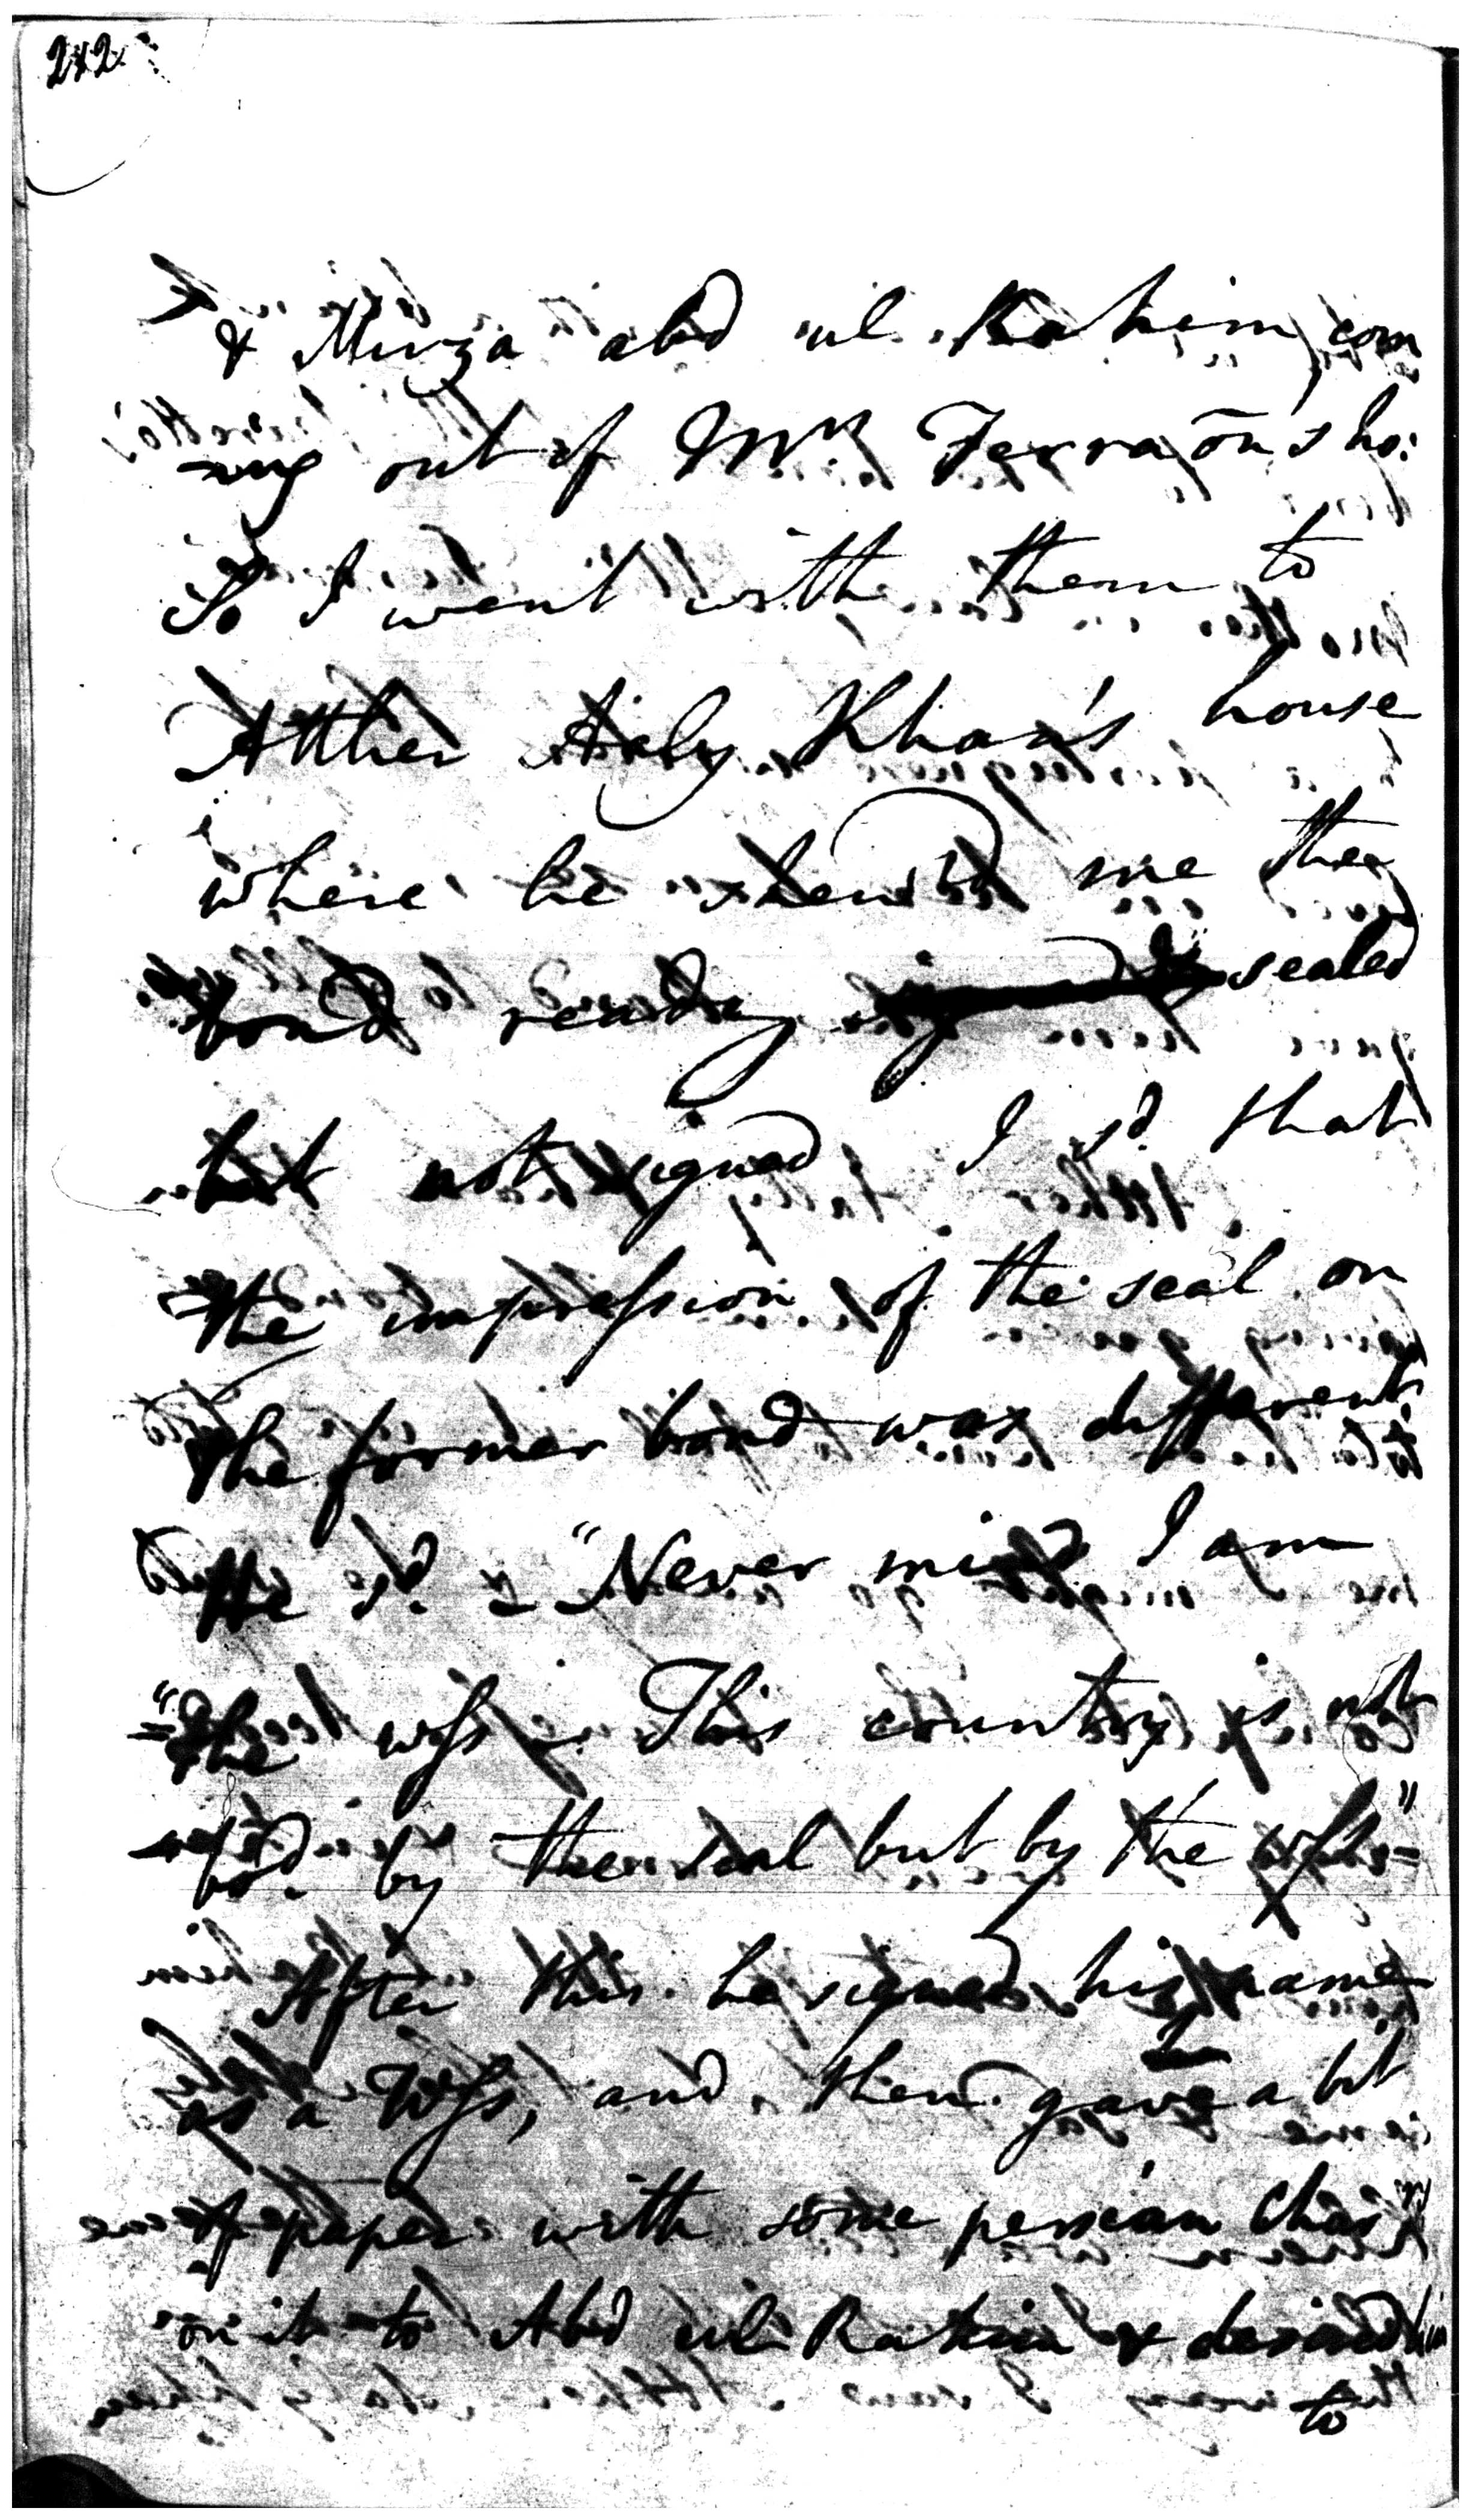 242
& Mirza abd ul Rahim com
=ing out of Mrs Ferraõn's ho:
So I went with them to
Atther Aaly Khan's house
where he shewed me the
bond ready sealed
but not signed I sd. that
the impression of the seal on
the former bond was different
He sd. "Never mind I am
"the wss. This country is not
bd. by the seal but by the wss"
After this he signed his name
as a Wss, and then gave a bit
of paper with some persian Char
on it to Abd ul Rahim & desired him
to